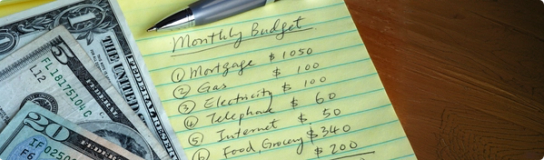 Monthly Budget
① Mortgage $1050
② Gas $100
③ Electricity $100
④ Telephone $60
⑤ Internet $50
⑥ Food, Grocery $340
$200
THE UNITED
FL18175
L12
5
20